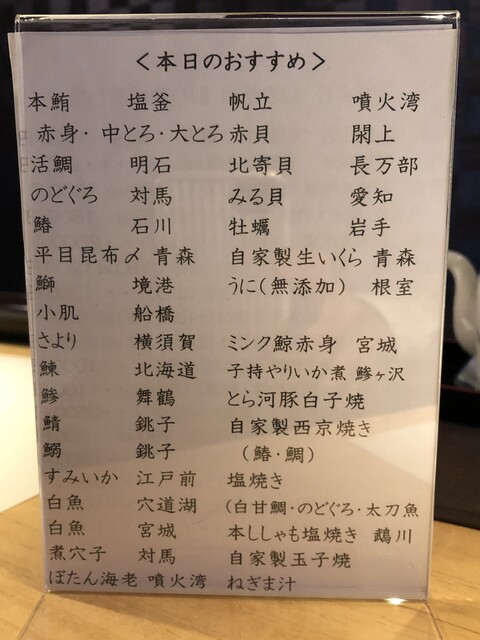 ＜本日のおすすめ＞
本鮪 塩釜 帆立 噴火湾
赤身・中とろ・大とろ 赤貝 閖上
活鯛 明石 北寄貝 長万部
のどぐろ 対馬 みる貝 愛知
鰆 石川 牡蠣 岩手
平目昆布〆 青森 自家製生いくら 青森
鰤 境港 うに(無添加) 根室
小肌 船橋
さより 横須賀 ミンク鯨赤身 宮城
鰊 北海道 子持やりいか煮 鯵ヶ沢
鯵 舞鶴 とら河豚白子焼
鯖 銚子 自家製西京焼き
鰯 銚子 (鰆・鯛)
すみいか 江戸前 塩焼き
白魚 宍道湖 (白甘鯛・のどぐろ・太刀魚
白魚 宮城 本ししゃも塩焼き 鵡川
煮穴子 対馬 自家製玉子焼
ぼたん海老 噴火湾 ねぎま汁